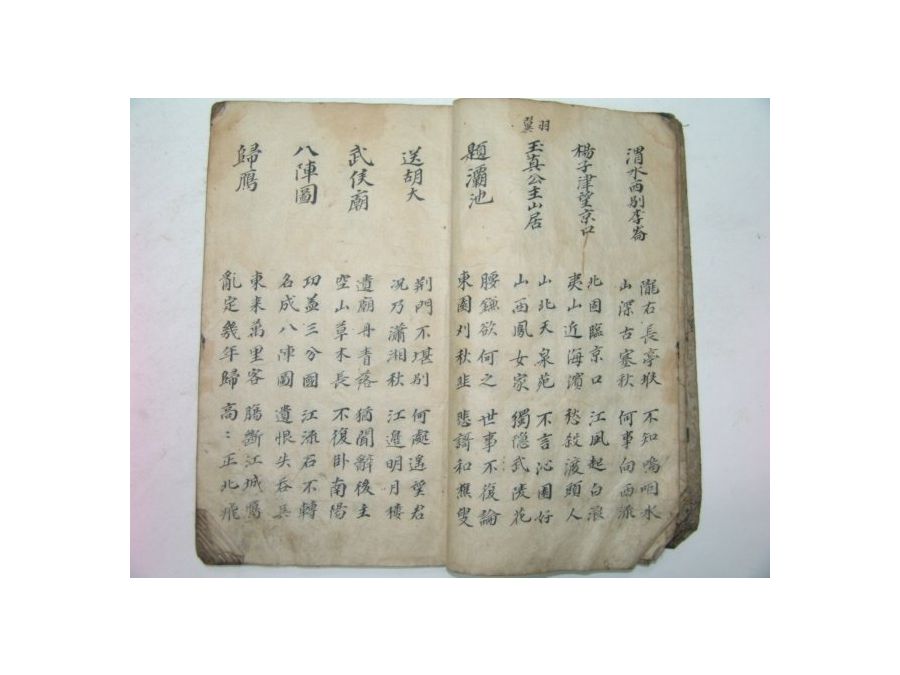 渭水西別李崙
隴右長亭堠
山深古塞秋
不知嗚咽水
何事向西流
楊子津望京口
北固臨京口
夷山近海濱
江風起白浪
愁殺渡頭人
羽翼
玉真公主山居
山北天泉苑
山西鳳女家
不言沁園好
獨隱武陵花
題灞池
腰鎌欲何之
東園刈秋韭
世事不復論
悲謌和樵叟
送胡大
荆門不堪別
况乃瀟湘秋
何處遙望君
江邊明月樓
武侯廟
遺廟丹青落
空山草木長
猶聞辭後主
不復卧南陽
八陣圖
功盖三分國
名成八陣圖
江流石不轉
遺恨失吞吳
歸鴈
東来萬里客
亂定幾年歸
腸斷江城鴈
高〻正北飛